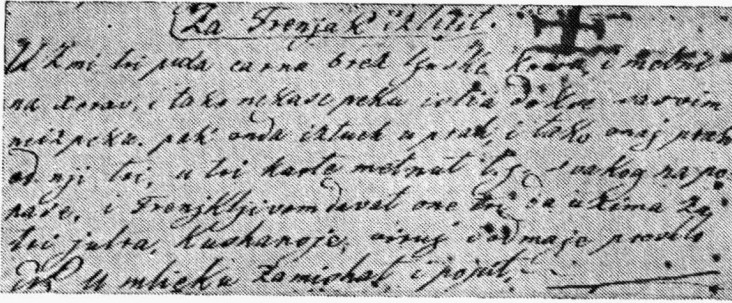 Za Frenjak izličit.
Uzmi tri puža carna brez ljuske kova, i metni
na xerav, i tako nekase peku isva dokse sasvim
neizpeku. pak onda iztuch u prah, i tako onaj prah
od nji tri, u tri karte metnut tj. svakog napo
nase, i Frenjkljivom davat one tri da uzima za
tri jutra, kushanoje,
u mlieku zamishat, i popit,